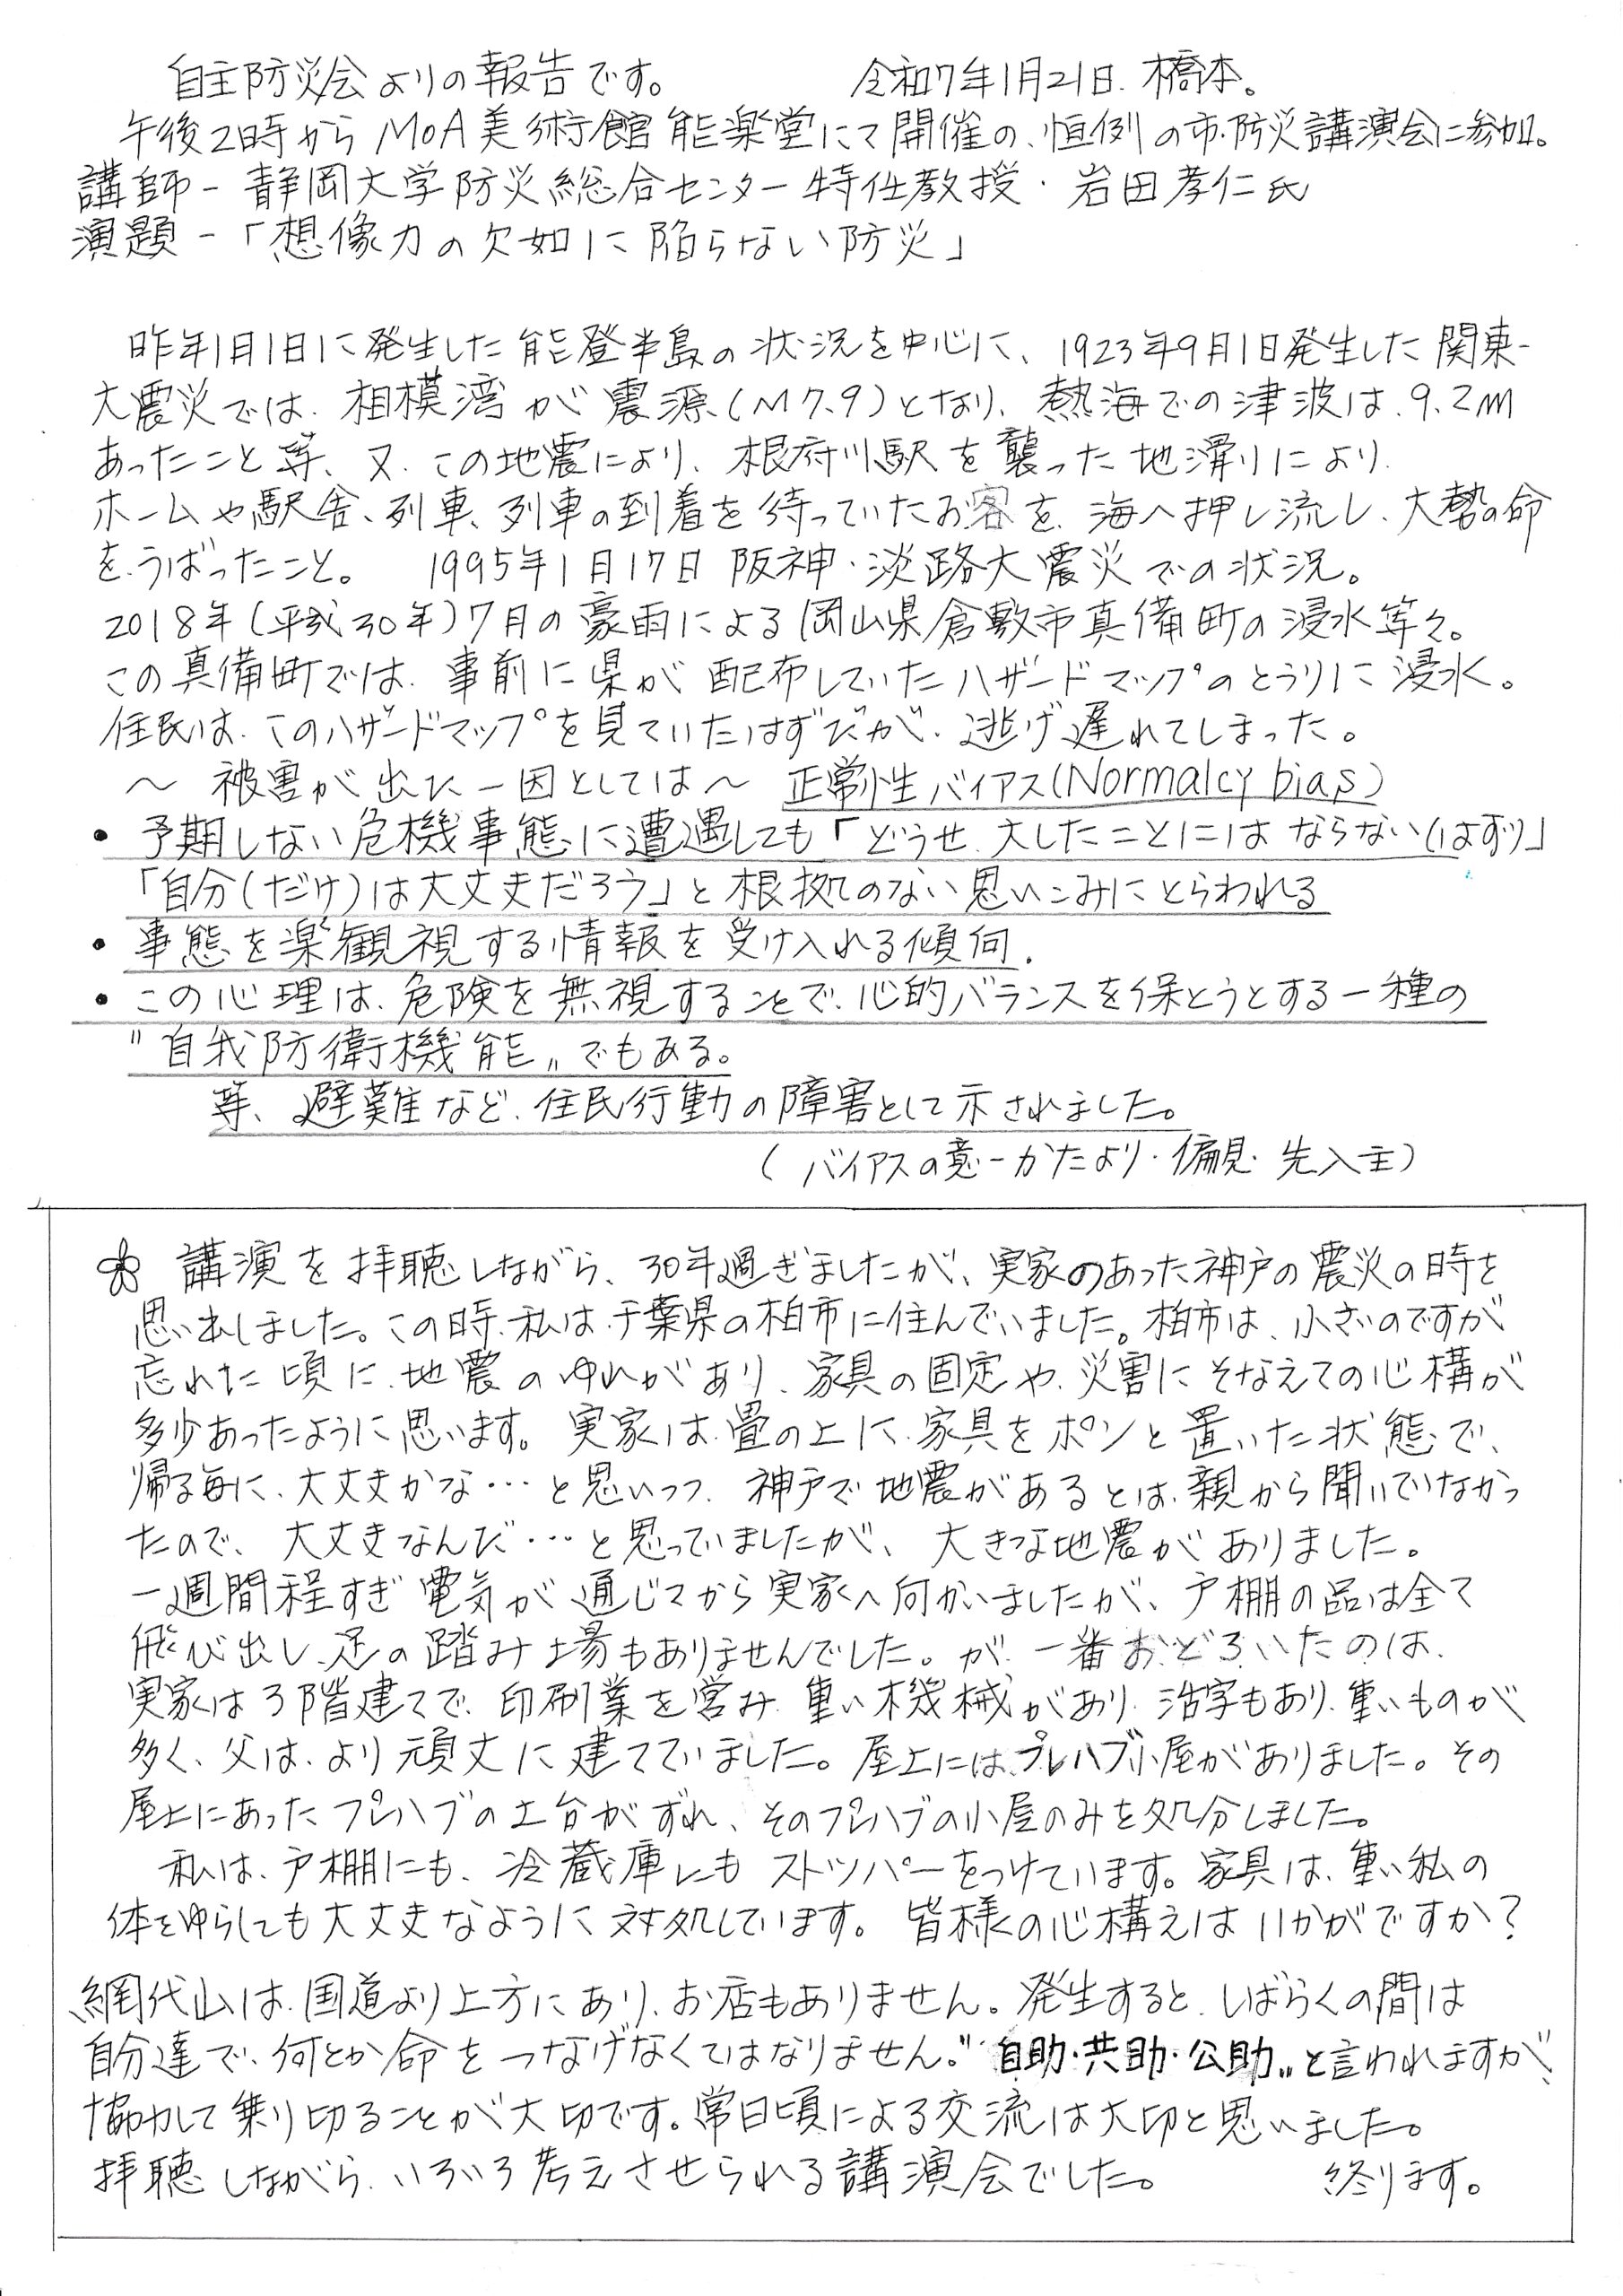 自主防災会よりの報告です。　令和7年1月21日. 橋本。
午後2時からMoA美術館能楽堂にて開催の、恒例の市.防災講演会に参加。
講師－静岡大学防災総合センター特任教授・岩田孝仁氏
演題－「想像力の欠如に陥らない防災」
昨年1月1日に発生した能登半島の状況を中心に、1923年9月1日発生した関東-
大震災では、相模湾が震源(M7.9)となり、熱海での津波は、9.2m
あったこと等、又、この地震により、根府川駅を襲った地滑りにより、
ホームや駅舎、列車、列車の到着を待っていたお客を、海へ押し流し、大勢の命
を、うばったこと。　1995年1月17日 阪神・淡路大震災での状況。
2018年(平成30年)7月の豪雨による岡山県倉敷市真備町の浸水等々。
この真備町では、事前に県が配布していたハザードマップのとうりに浸水。
住民は、このハザードマップを見ていたはずだが、逃げ遅れてしまった。
～ 被害が出た一因としては～ 正常性バイアス(Normalcy bias)
• 予期しない危機事態に遭遇しても「どうせ、大したことにはならない(はず)」
「自分(だけ)は大丈夫だろう」と根拠のない思いこみにとらわれる
• 事態を楽観視する情報を受け入れる傾向.
• この心理は、危険を無視することで、心的バランスを保とうとする一種の
〃自我防衛機能〃でもある。
等、避難など、住民行動の障害として示されました。
( バイアスの意－かたより・偏見・先入主)
講演を拝聴しながら、30年過ぎましたが、実家のあった神戸の震災の時を
思い出しました。この時、私は、千葉県の柏市に住んでいました。柏市は、小さいのですが
忘れた頃に、地震のゆれがあり、家具の固定や、災害にそなえての心構が
多少あったように思います。実家は、畳の上に、家具をポンと置いた状態で、
帰る毎に、大丈夫かな…と思いつつ、神戸で地震があるとは、親から聞いていなかっ
たので、大丈夫なんだ…と思っていましたが、大きな地震がありました。
一週間程すぎ電気が通じてから実家へ向かいましたが、戸棚の品は全て
飛び出し、足の踏み場もありませんでした。が、一番おどろいたのは、
実家は3階建てで、印刷業を営み、重い機械があり、活字もあり、重いものが
多く、父は、より頑丈に建てていました。屋上にはプレハブ小屋がありました。その
屋上にあったプレハブの土台がずれ、そのプレハブの小屋のみを処分しました。
私は、戸棚にも、冷蔵庫にもストッパーをつけています。家具は、重い私の
体をゆらしても大丈夫なように対処しています。皆様の心構えはいかがですか?
網代山は、国道より上方にあり、お店もありません。発生すると、しばらくの間は
自分達で、何とか命をつなげなくてはなりません。〃自助・共助・公助〃と言われますが、
協力して乗り切ることが大切です。常日頃による交流は大切と思いました。
拝聴しながら、いろいろ考えさせられる講演会でした。　終ります。